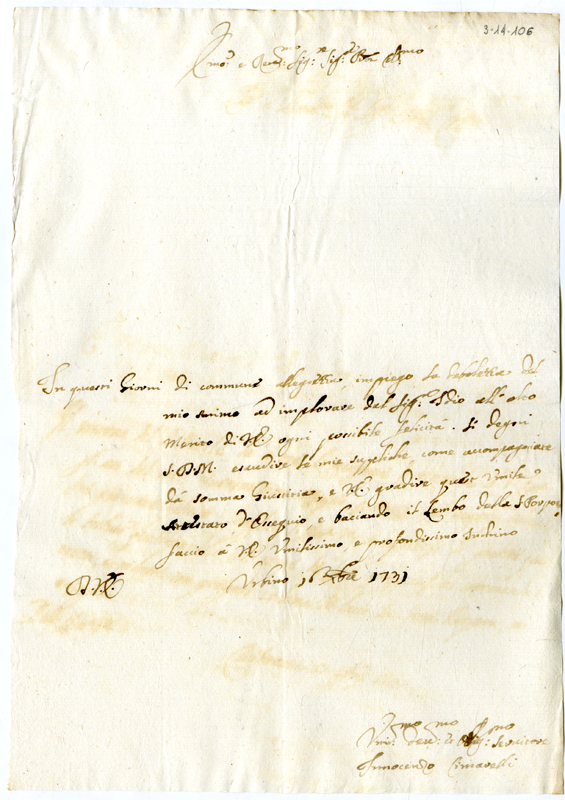 3-14-106
Emo: e Revmo: Sig:re Sig:r Pne Colmo
In questi Giorni di commune allegrezza, impiego la debolezza del
mio animo ad implorare dal Sig: Idio all'alto
Merito di V.E. ogni possibile felicità. Si degni
S.D.M. esaudire le mie suppliche, come accompagniate
da somma Giustizia, e V.E. gradire quest'Umile
Attestato d'Ossequio, e baciando il Lembo della S. Porpora
faccio à V.E. Umilissimo, e profondissimo Inchino
D.V.E. Urbino 16 Xbre 1731
Umo: devmo: et Obligmo: Servitore
Innocenzo Cimarelli